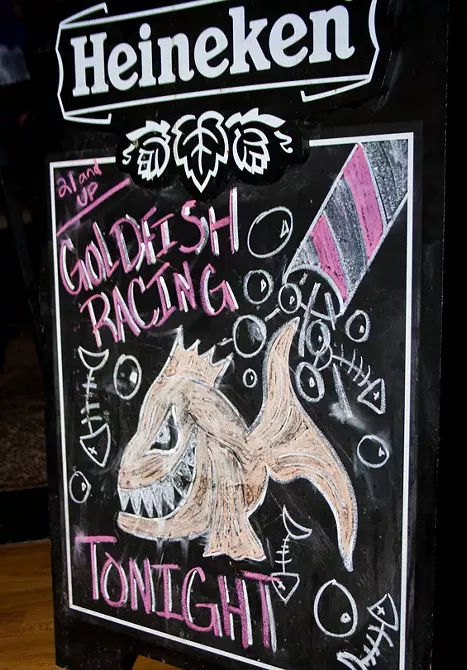 Heineken
21 and
UP
GOLDFISH
RACING
TONIGHT